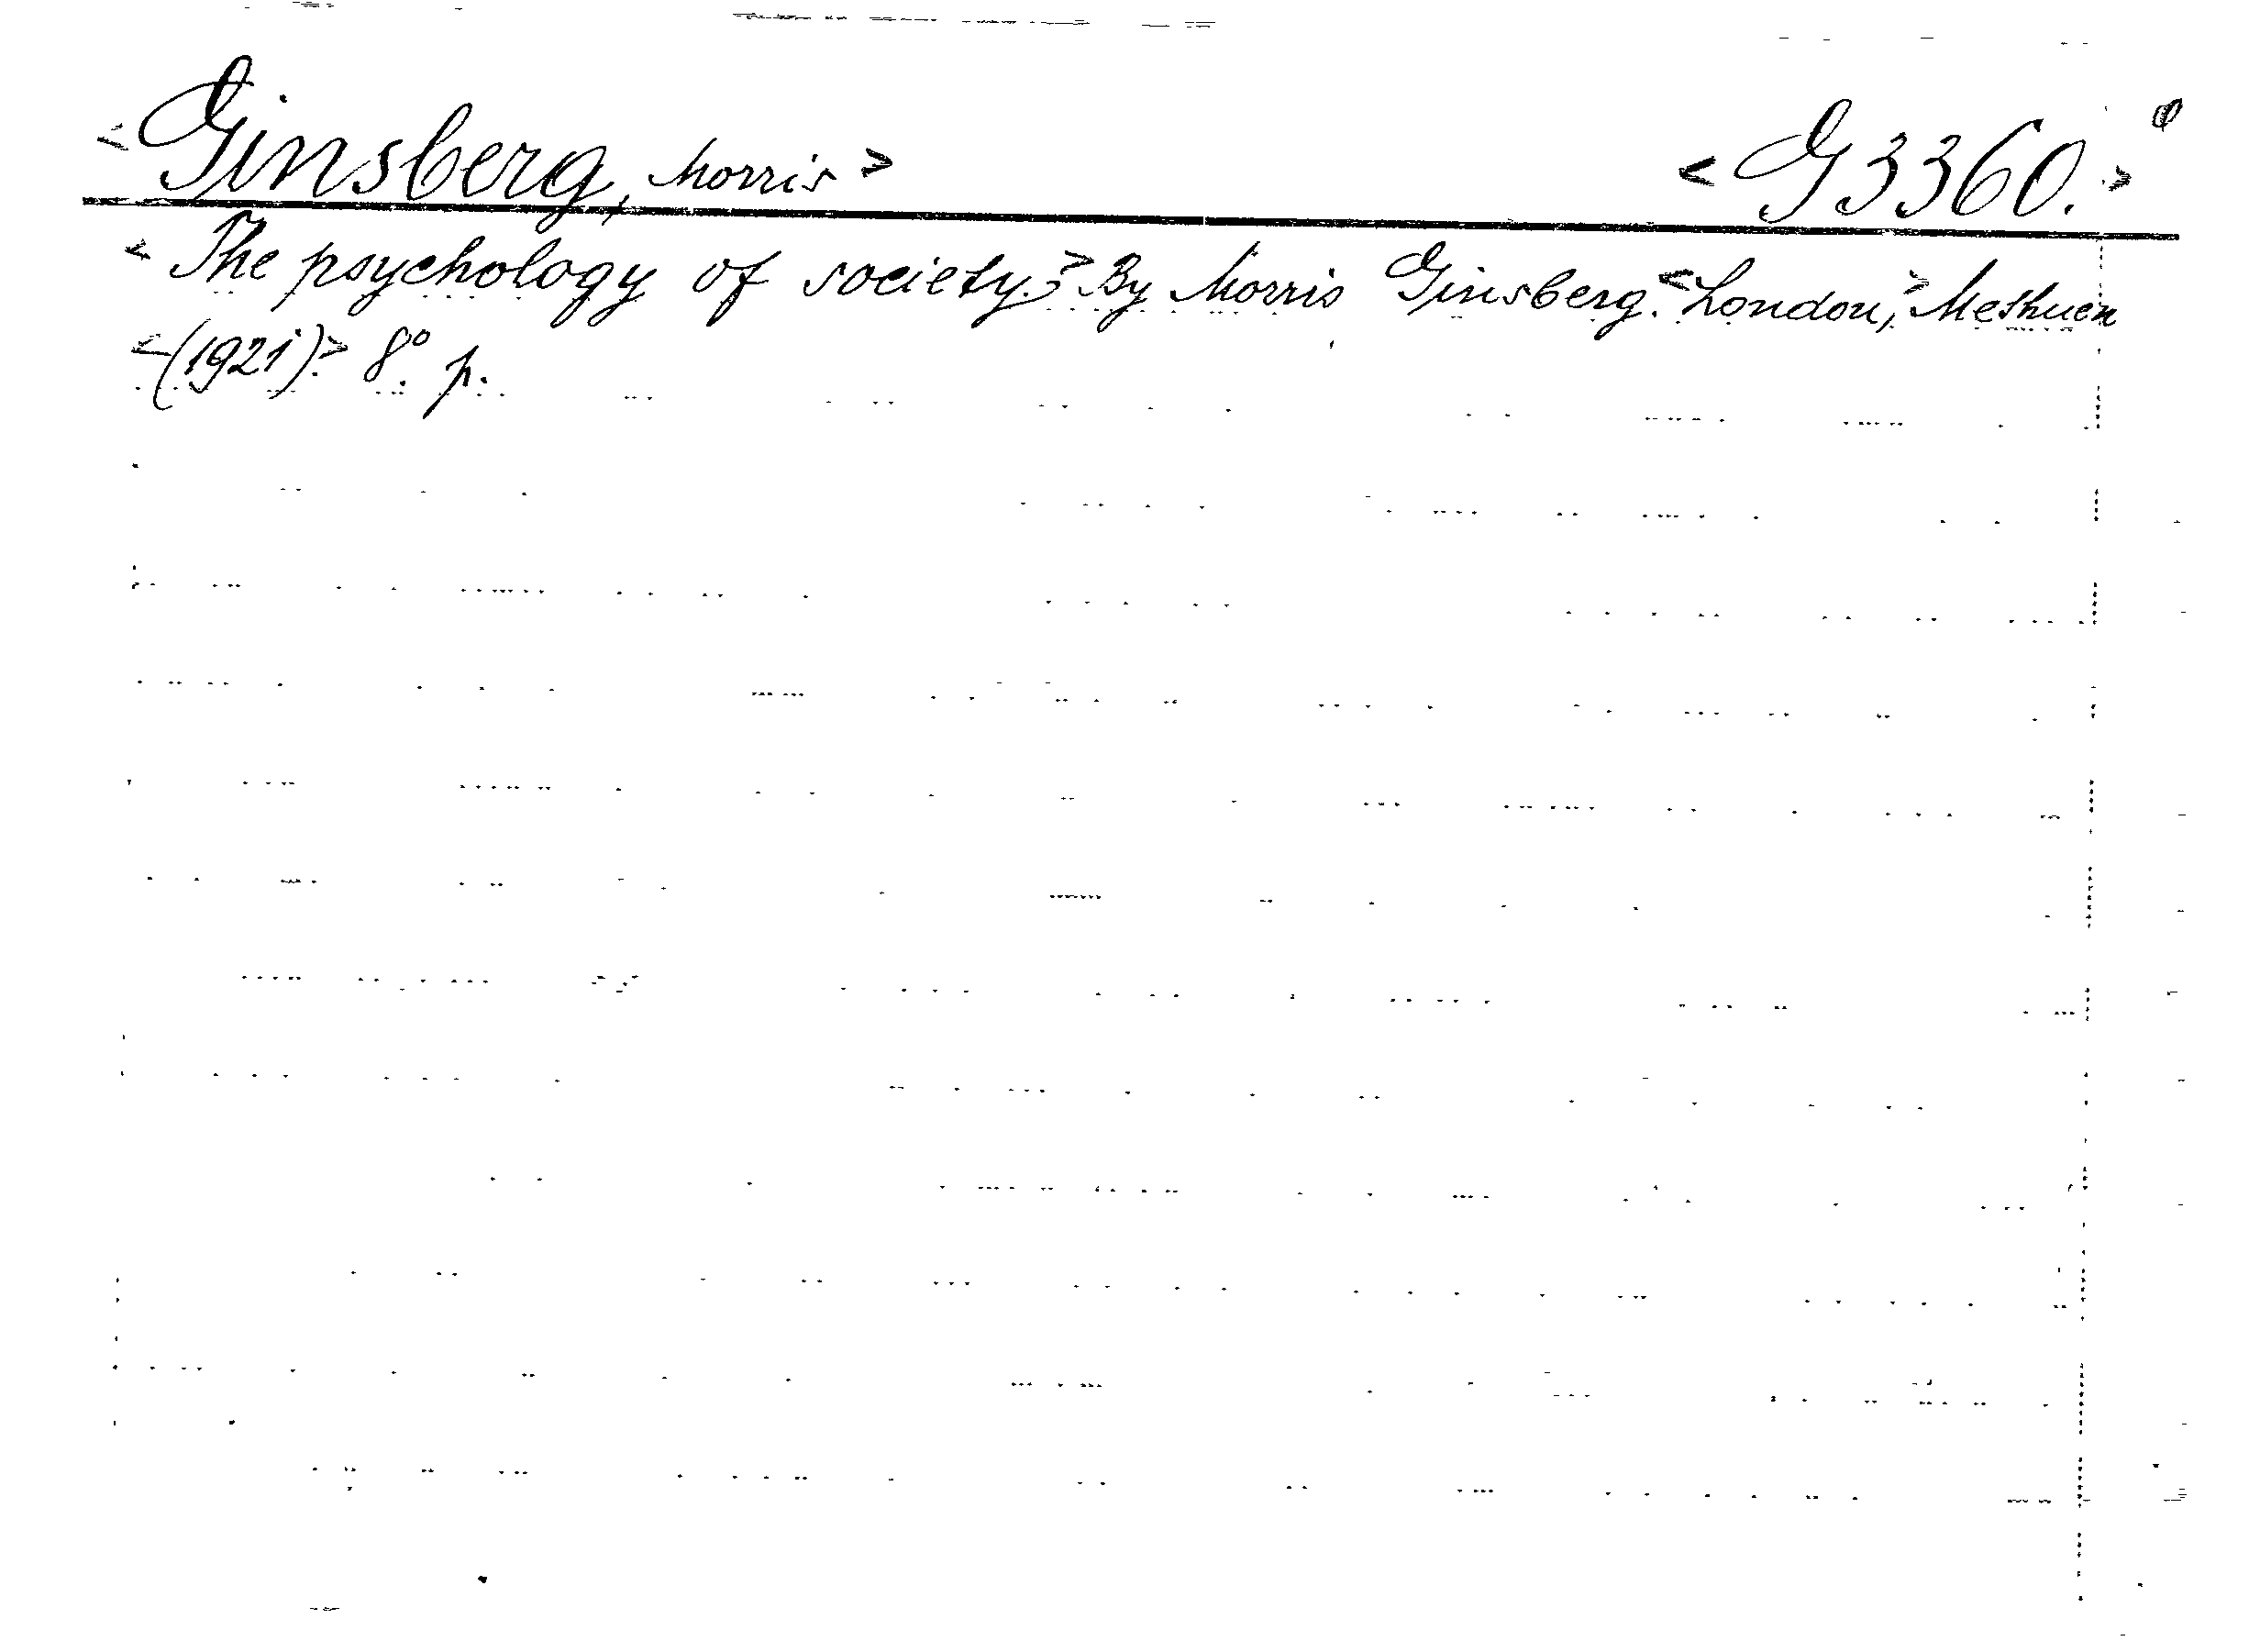 <Ginsberg, Morris> <G 3360.>
<The psychology of society.> By Morris Ginsberg. <London,> Methuen
<(1921)> 8° p.